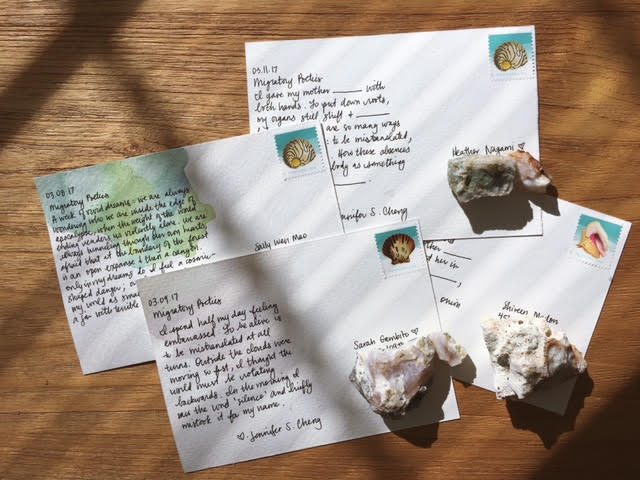 03.11.17
Migratory Poetics
I gave my mother ______ with
both hands. To put down roots,
my organs still shift + ______
are so many ways
to be mistranslated,
How these absences
body as something
Jennifer S. Cheng
Heather Nagami ♡
03.08.17
Migratory Poetics
A week of vivid dreams: we are always
wondering who we are inside the edge of
apocalypse, when the
renders us violently alive. We are
always
through our own hands
afraid that at the
of the forest
is an open expanse + then a
only in my dreams do I feel a
shaped danger;
my world as small
a jar with terrible
Sally Wen Mao
03.09.17
Migratory Poetics
I spend half my day feeling
embarrassed. To be alive is
to be mistranslated at all
turns. Outside the clouds were
moving so fast, I thought the
world must be rotating
backwards. In the morning I
saw the word 'silence' and briefly
mistook it for my name.
♡. Jennifer S. Cheng
Sarah Gambito ♡
her in
Shireen